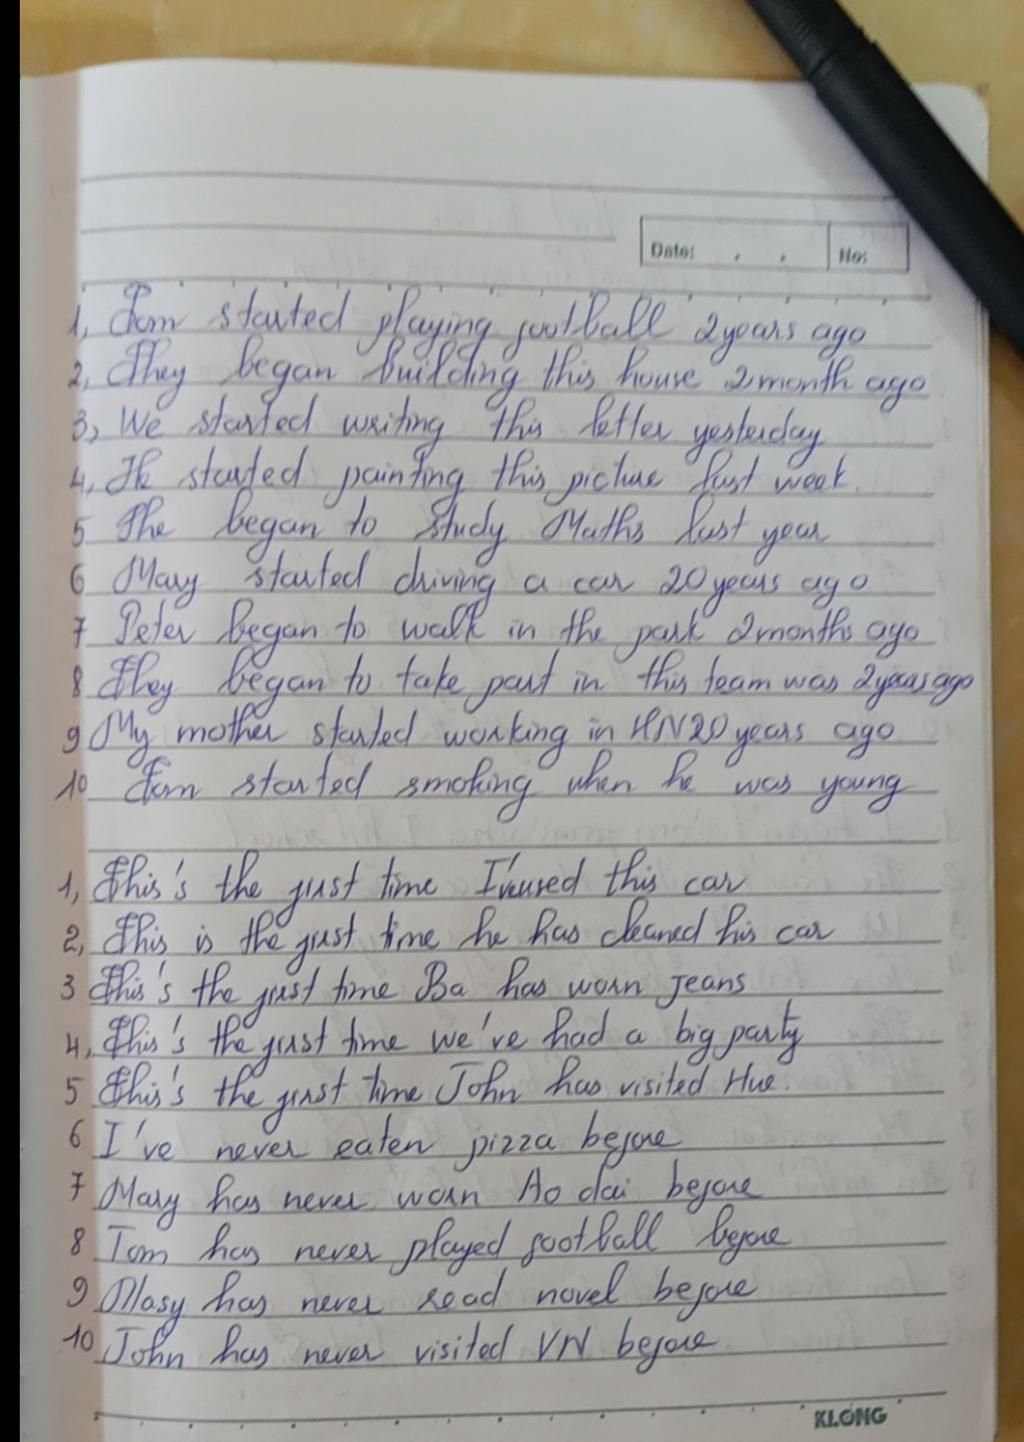 Date: . . No:
1, Tom started playing football 2 years ago
2, They began building this house 2 month ago
3, We started writing this letter yesterday
4, He started painting this picture last week.
5 She began to study Maths last year
6 Mary started driving a car 20 years ago
7 Peter began to walk in the park 2 months ago
8 They began to take part in this team was 2 years ago
9 My mother started working in HN 20 years ago
10 Tom started smoking when he was young
1, This's the first time I've used this car
2, This is the first time he has cleaned his car
3 This's the first time Ba has worn Jeans
4, This's the first time we've had a big party
5 This's the first time John has visited Hue.
6 I've never eaten pizza before
7 Mary has never worn Ao dai before
8 Tom has never played football before
9 Mary has never read novel before
10 John has never visited VN before
KLONG